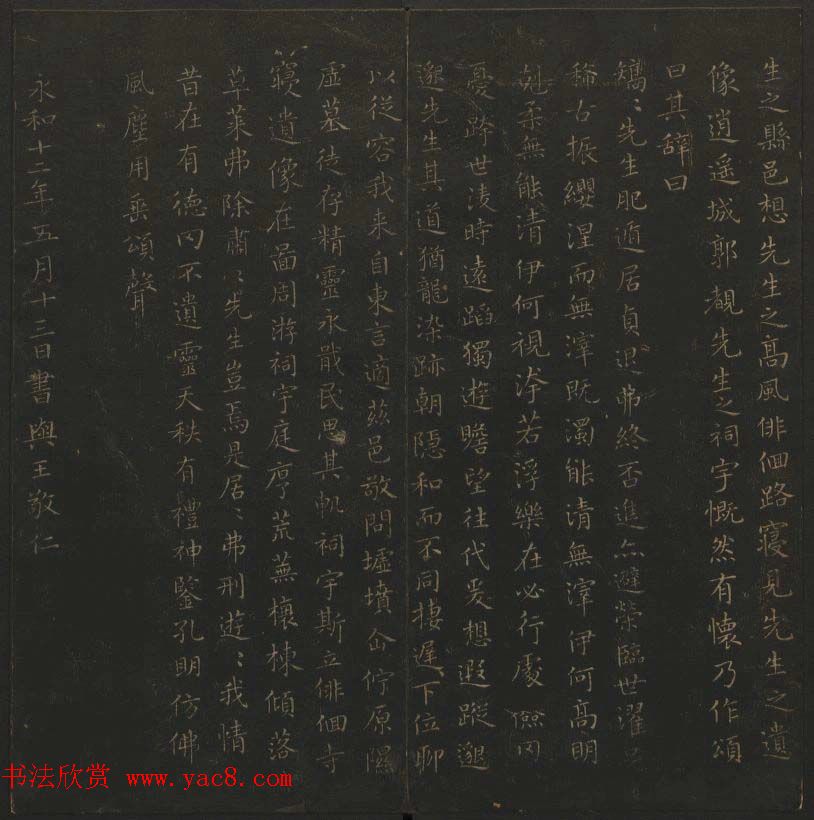 生之縣邑想先生之高風俳佪路寢見先生之遺
像逍遥城郭覩先生之祠宇慨然有懷乃作頌
曰其辞曰
矯〻先生肥遁居貞退弗終否進亦避榮臨世濯
稀古振纓涅而無滓既濁能清無滓伊何高明
剋柔無能清伊何視汙若浮樂在必行處儉罔
憂跨世凌時遠蹈獨遊瞻望往代爰想遐蹤邈
邈先生其道猶龍染跡朝隱和而不同棲遲下位聊
以從容我来自東言適兹邑敬問墟墳企佇原隰
虚墓徒存精靈永戢民思其軌祠宇斯立俳佪寺
寢遺像在啚周游祠宇庭序荒蕪榱棟傾落
草莱弗除肅〻先生豈焉是居〻弗刑遊〻我情
昔在有德罔不遺靈天秩有禮神鑒孔明仿佛
風塵用垂頌聲
永和十二年五月十三日書與王敬仁
书法欣赏 www.yac8.com